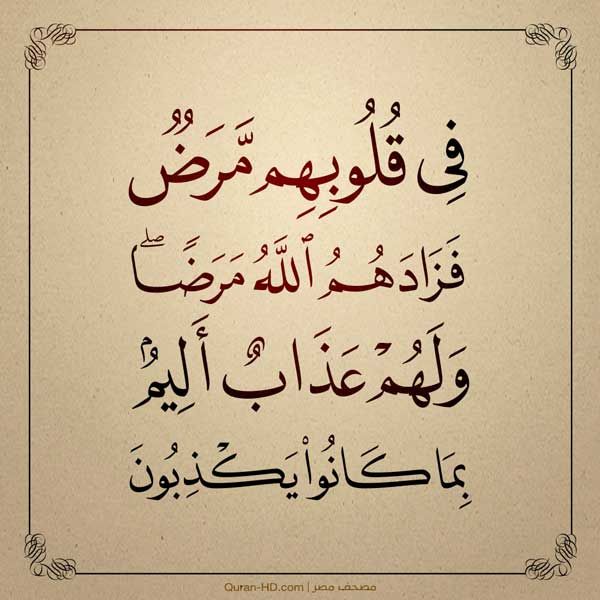 فِى قُلُوبِهِم مَّرَضٌ
فَزَادَهُمُ ٱللَّهُ مَرَضًا ۖ
وَلَهُمْ عَذَابٌ أَلِيمٌۢ
بِمَا كَانُوا۟ يَكْذِبُونَ
Quran-HD.com | مصحف مصر